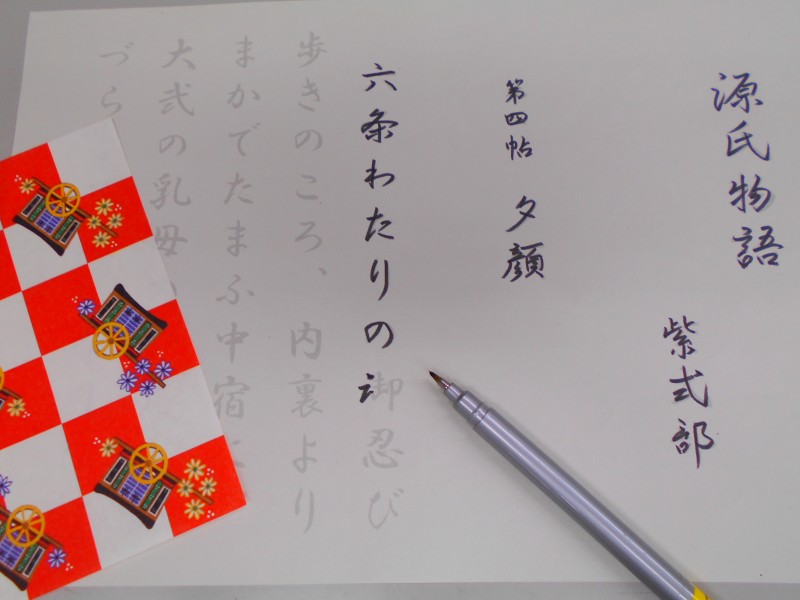 源氏物語
紫式部
第四帖 夕顔
六条わたりの御忍び
歩きのころ、内裏より
まかでたまふ中宿に
大弐の乳母
づら